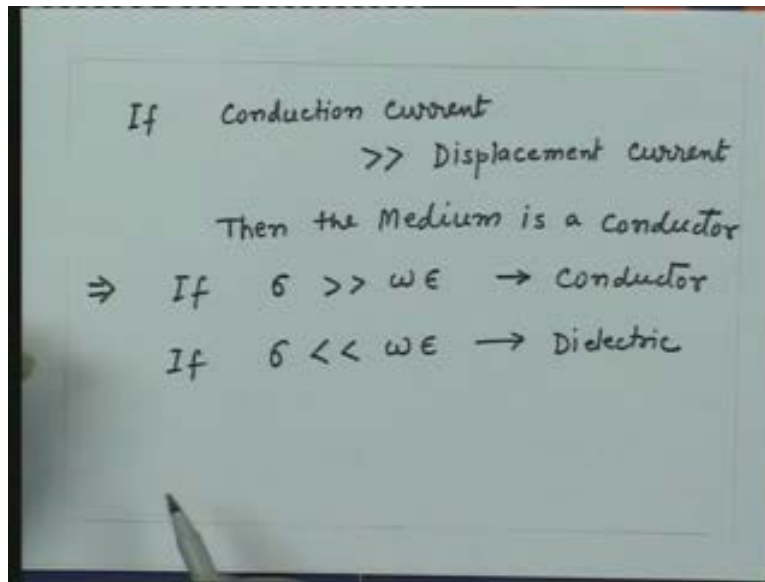 If Conduction Current
>> Displacement Current
Then the Medium is a Conductor
⇒ If σ >> ωϵ → Conductor
If σ << ωϵ → Dielectric